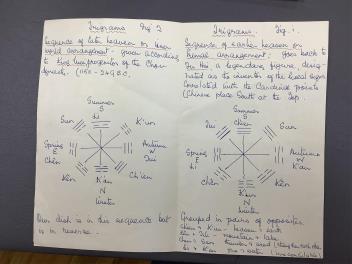 Trigrams Fig 2
Sequence of later heaven or inner
world arrangement - given according
to
dynasty. (1150 - 249 B.C.
Summer
S
Li
Sun
K'un
Spring
E
Chên
Autumn
W
Tui
Kên
Ch'ien
K'an
N
Winter
dish is in this sequence but
is in reverse.
Trigrams. Fig. 1.
Sequence of earlier heaven or
Primal arrangement: goes back to
Fu Hsi a legendary figure, desig-
nated as the inventor of the lineal signs
Correlated with the Cardinal points
(Chinese place South at the Top.
Summer
S
Ch'ien
Tui
Sun
Spring
E
Li
Autumn
W
K'an
Chên
Kên
K'un
N
Winter
Grouped in pairs of opposites.
Ch'ien & K'un = heaven & earth
Kên & Tui - mountain & lake
Chên & Sun thunder & wind
Li & K'an fire & water